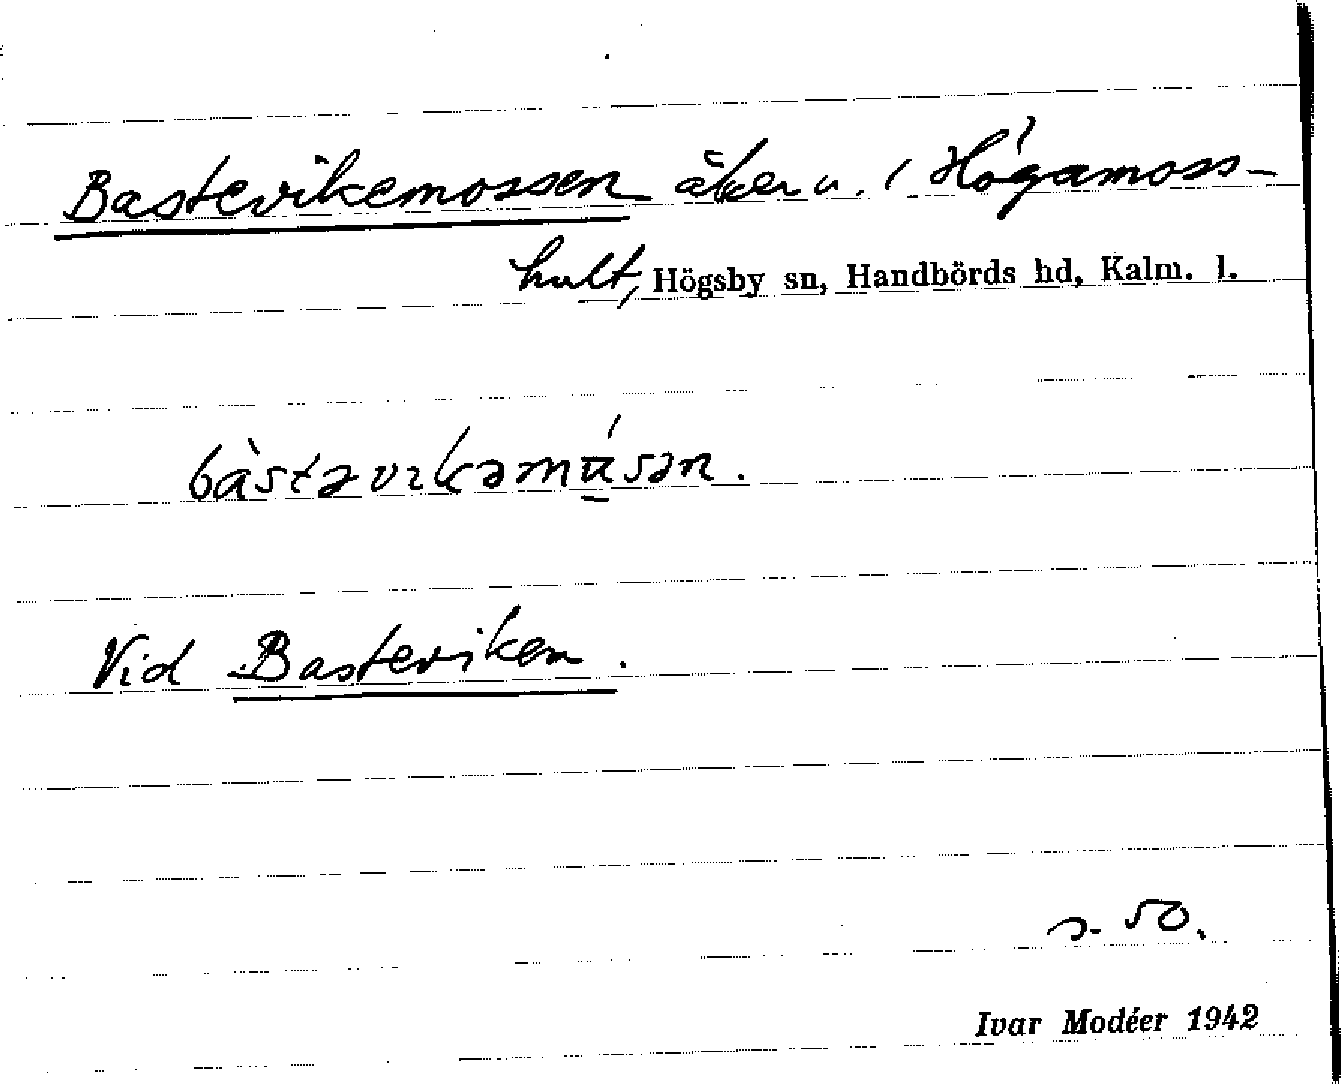 Bastevikemossen åker u. / Högamoss-
hult, Högsby sn, Handbörds hd, Kalm. l.
bàstəvɩkəmúsən.
Vid Basteviken.
s. 50.
Ivar Modéer 1942